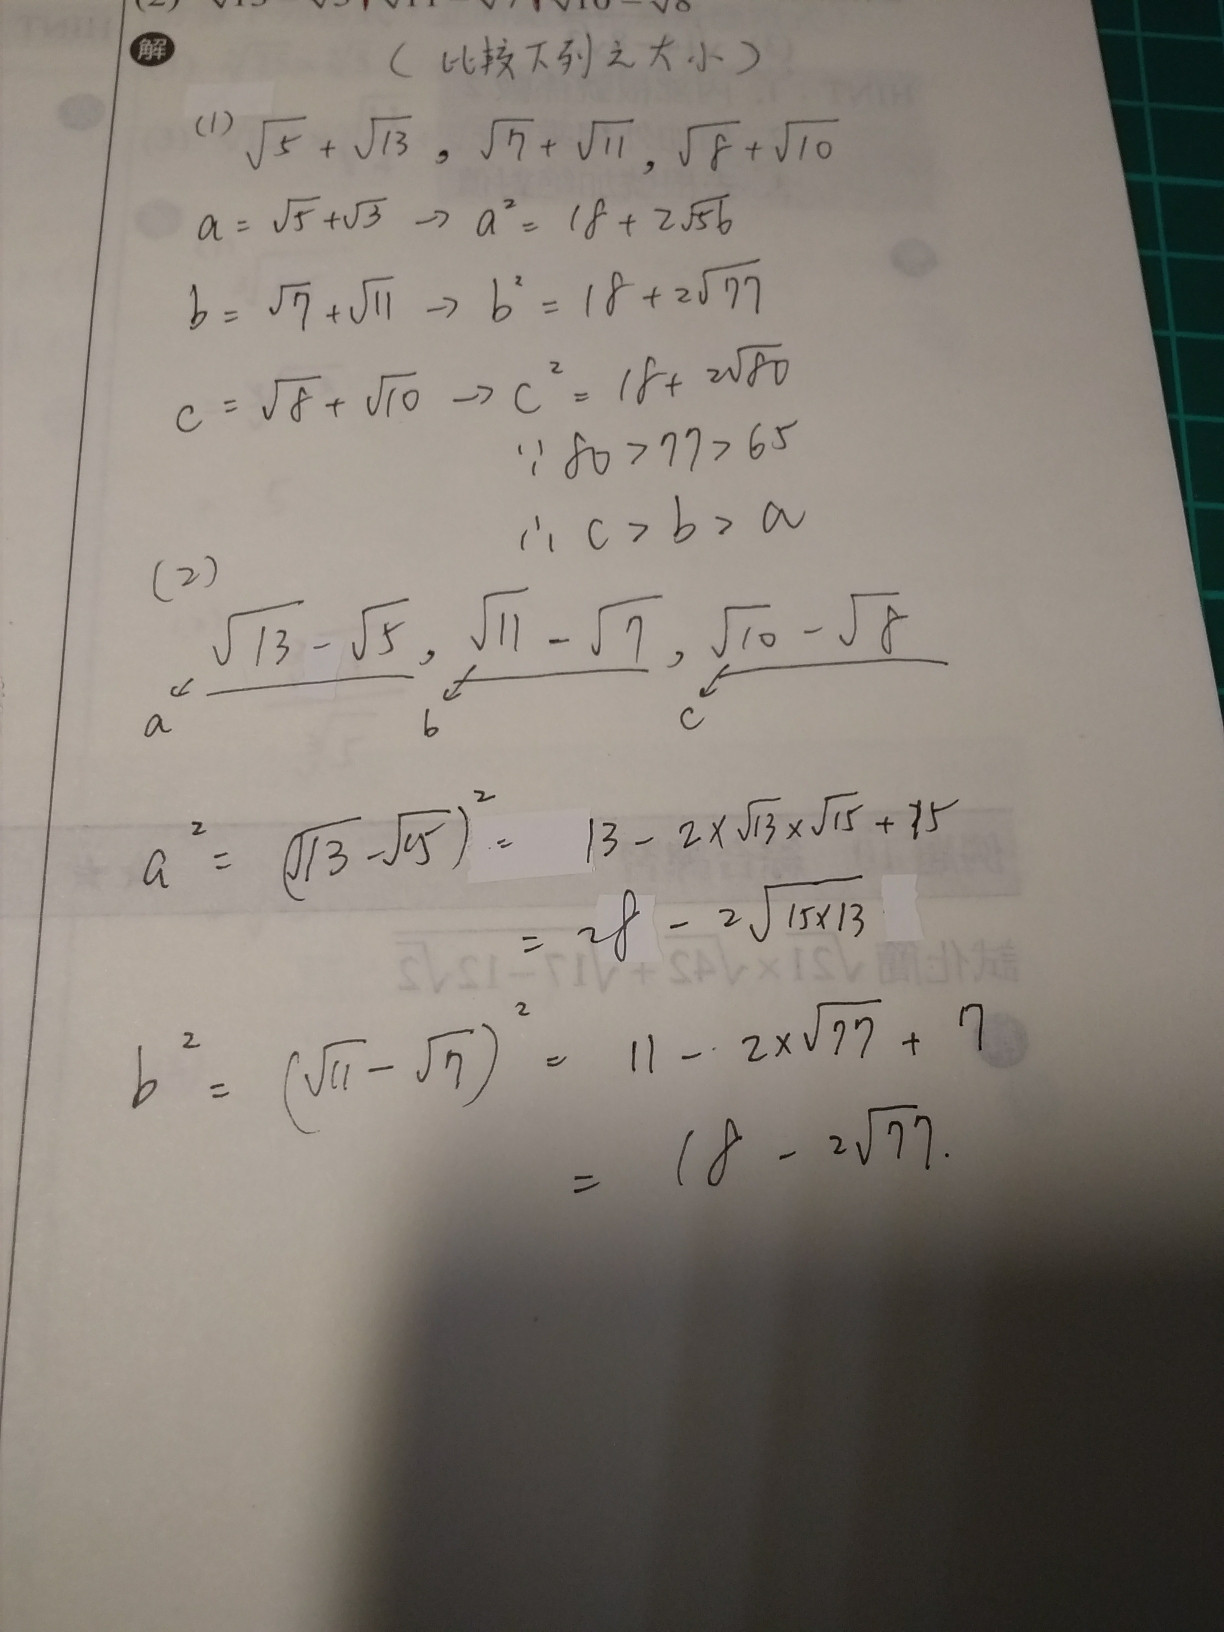 (2) √13 − √5, √11 − √7, √10 − √8
解
(比較下列之大小)
(1) √5 + √13, √7 + √11, √8 + √10
a = √5 + √3 → a² = 18 + 2√56
b = √7 + √11 → b² = 18 + 2√77
c = √8 + √10 → c² = 18 + 2√80
∵ 80 > 77 > 65
∴ c > b > a
(2)
√13 − √5, √11 − √7, √10 − √8
a b c
a² = (√13 − √15)² = 13 − 2×√13×√15 + 15
= 28 − 2√15×13
b² = (√11 − √7)² = 11 − 2×√77 + 7
= 18 − 2√77.